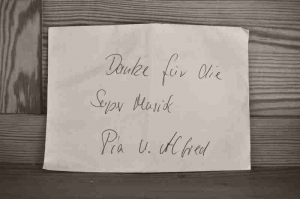 Danke für die
Super Musik
Pia u. Alfred